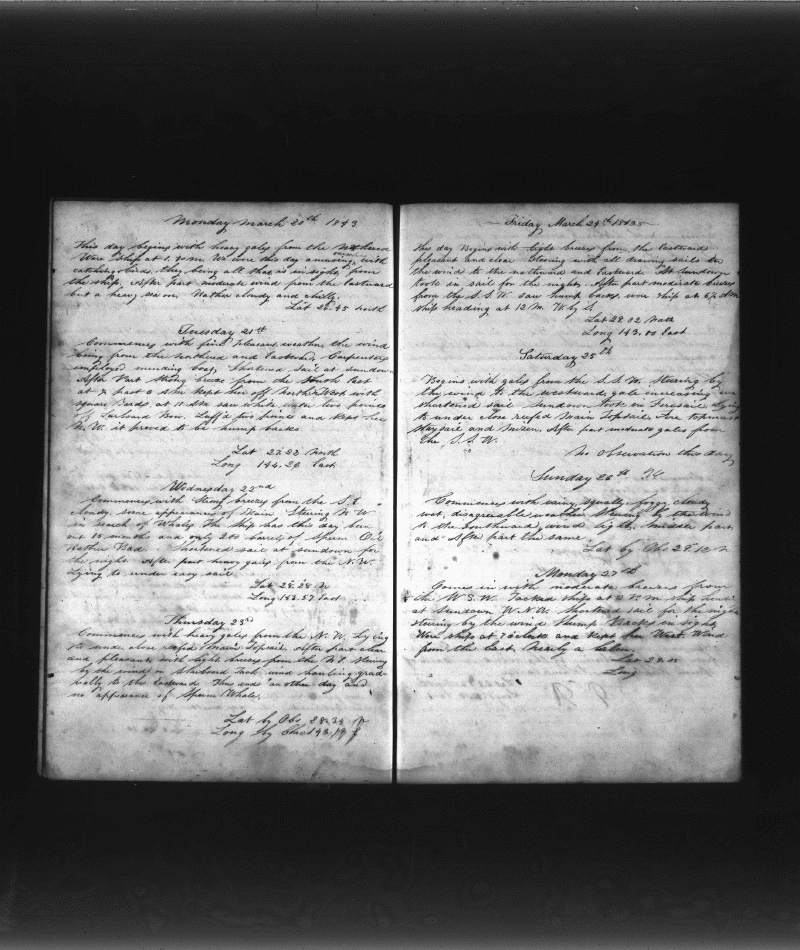 Monday March 20th 1843
This day begins with heavy gales from the Northered
Wore Ship at 1. P.M. We were this day amusing ourselves with
catching birds, they being all that is in sight from
the ship, After part moderate wind from the Eastward
but a heavy sea on. Wather cloudy and chilly.
Lat 28.45 North
Tuesday 21st
Commences with fine pleasant weather the wind
being from the Northered and Eastward, Carpenter
employed mending boat, Shortened sail at sundown
After Part Strong breeze from the South East
at 7 past 6 AM kept her off North West with
square Yards, at 11 AM saw white water two points
of Larboard Bow, Luff'd two points and kept her
N.W. it proved to be hump backs
Lat 27.23 North
Long 144.26 East
Wednesday 22nd
Commences with Strong breezes from the S.E.
cloudy, some appearance of Rain Steering N W
in search of Whales, The ship has this day been
out 15 months and only 200 barrels of Sperm Oil
Rather Bad. Shortened sail at sundown for
the night. After part heavy gales from the N.W.
Lying to under easy sail
Lat 28.28 N
Long 143.57 East
Thursday 23rd
Commences with heavy gales from the N.W. Lying
to under close reefed Main Topsail. After part clear
and pleasant with light breezes from the N.E. Steering
by the wind on Starboard Tack, wind hauling grad-
ually to the Eastward. Thus ends another day and
no appearance of Sperm Whale.
Lat by Obs 28.34 N
Long by Chro 143.19 E
Friday March 24th 1843
This day Begins with light breezes from the Eastward
pleasant and clear Steering with all drawing sails by
the wind to the nothward and Eastward At Sundown
took in sail for the night. After part moderate breezes
from the S.S.W. saw hump backs wore ship at 6½ AM
Ship heading at 12 M. W by S.
Lat 28.02 North
Long 143.00 East
Saturday 25th
Begins with gales from the S.S.W. Steering by
the wind to the westward, gale increasing we
shortened sail Sundown took in Foresail. Lying
to under close reefed Main Topsail, Fore topmast
staysail and mizen, After part moderate gales from
the S.S.W.
No observation this day
Sunday 26th
Commences with rainy, squally, foggy, cloudy
wet, disagreeable weather Steering by the wind
to the Southward, wind light, Middle part
and After part the same
Lat by Obs 28.12 N
Monday 27th
Comes in with moderate breezes from
the W.S.W. Tacked ship at 2 P.M. ship head
at Sundown W.N.W. Shortened sail for the night
steering by the wind Hump Backs in sight,
Wore ships at 7 o'clock and kept her West. Wind
from the East. Nearly a calm
Lat 28.00
Long